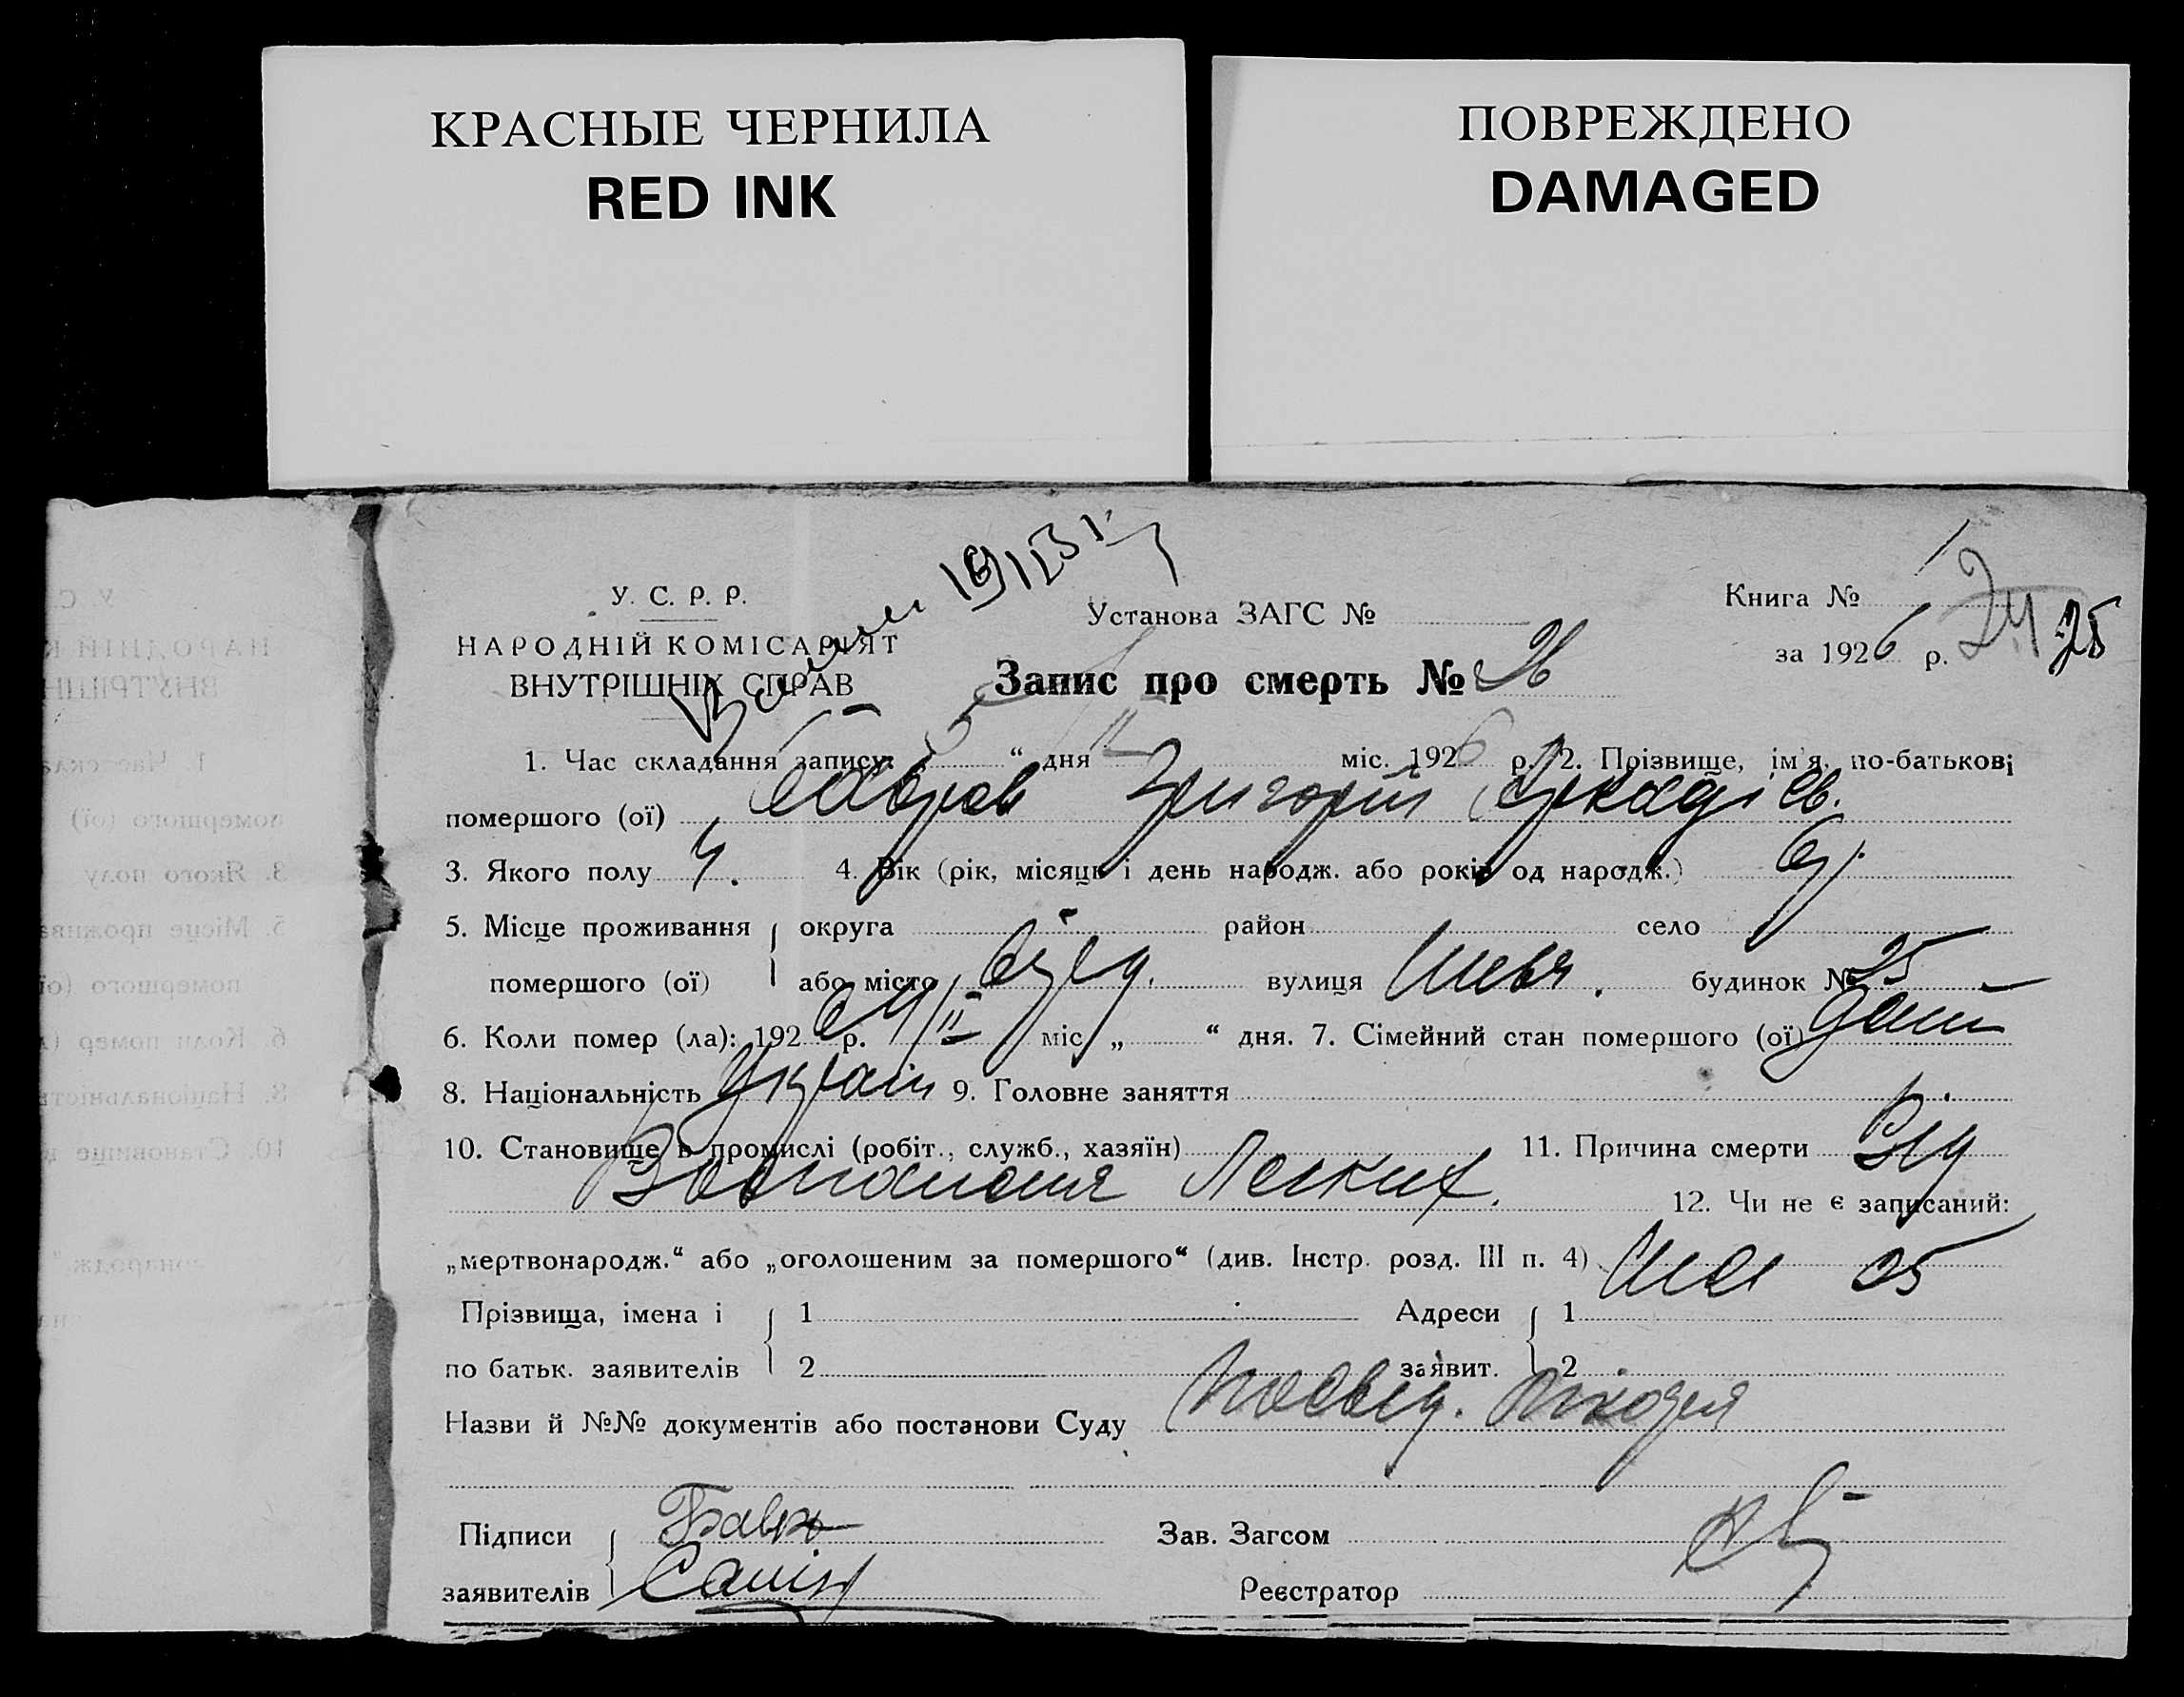 КРАСНЫЕ ЧЕРНИЛА
RED INK
ПОВРЕЖДЕНО
DAMAGED
У. С. Р. Р.
НАРОДНІЙ КОМІСАРІЯТ
ВНУТРІШНІХ СПРАВ
Установа ЗАГС №
Книга №
за 1926 р. 24 25
Запис про смерть № 26
1. Час складання запису: 5 “ дня II міс. 1926 р. 2. Прізвище, ім'я, по-батькові
помершого (ої) Григорій Аркадієв.
3. Якого полу Ч. 4. Вік (рік, місяць і день народж. або років од народж.)
5. Місце проживання округа район село
помершого (ої) або місто вулиця Шевч. будинок № 25
6. Коли помер (ла): 1926 р. 4/II міс. „ “ дня. 7. Сімейний стан помершого (ої)
8. Національність Україн 9. Головне заняття
10. Становище в промислі (робіт., служб., хазяїн) 11. Причина смерти
Воспаления Легких. 12. Чи не є записаний:
„мертвонародж.“ або „оголошеним за помершого“ (див. Інстр. розд. III п. 4)
Прізвища, імена і 1 Адреси 1
по батьк. заявителів 2 заявит. 2
Назви й №№ документів або постанови Суду Посвід.
Підписи Зав. Загсом
заявителів Реєстратор